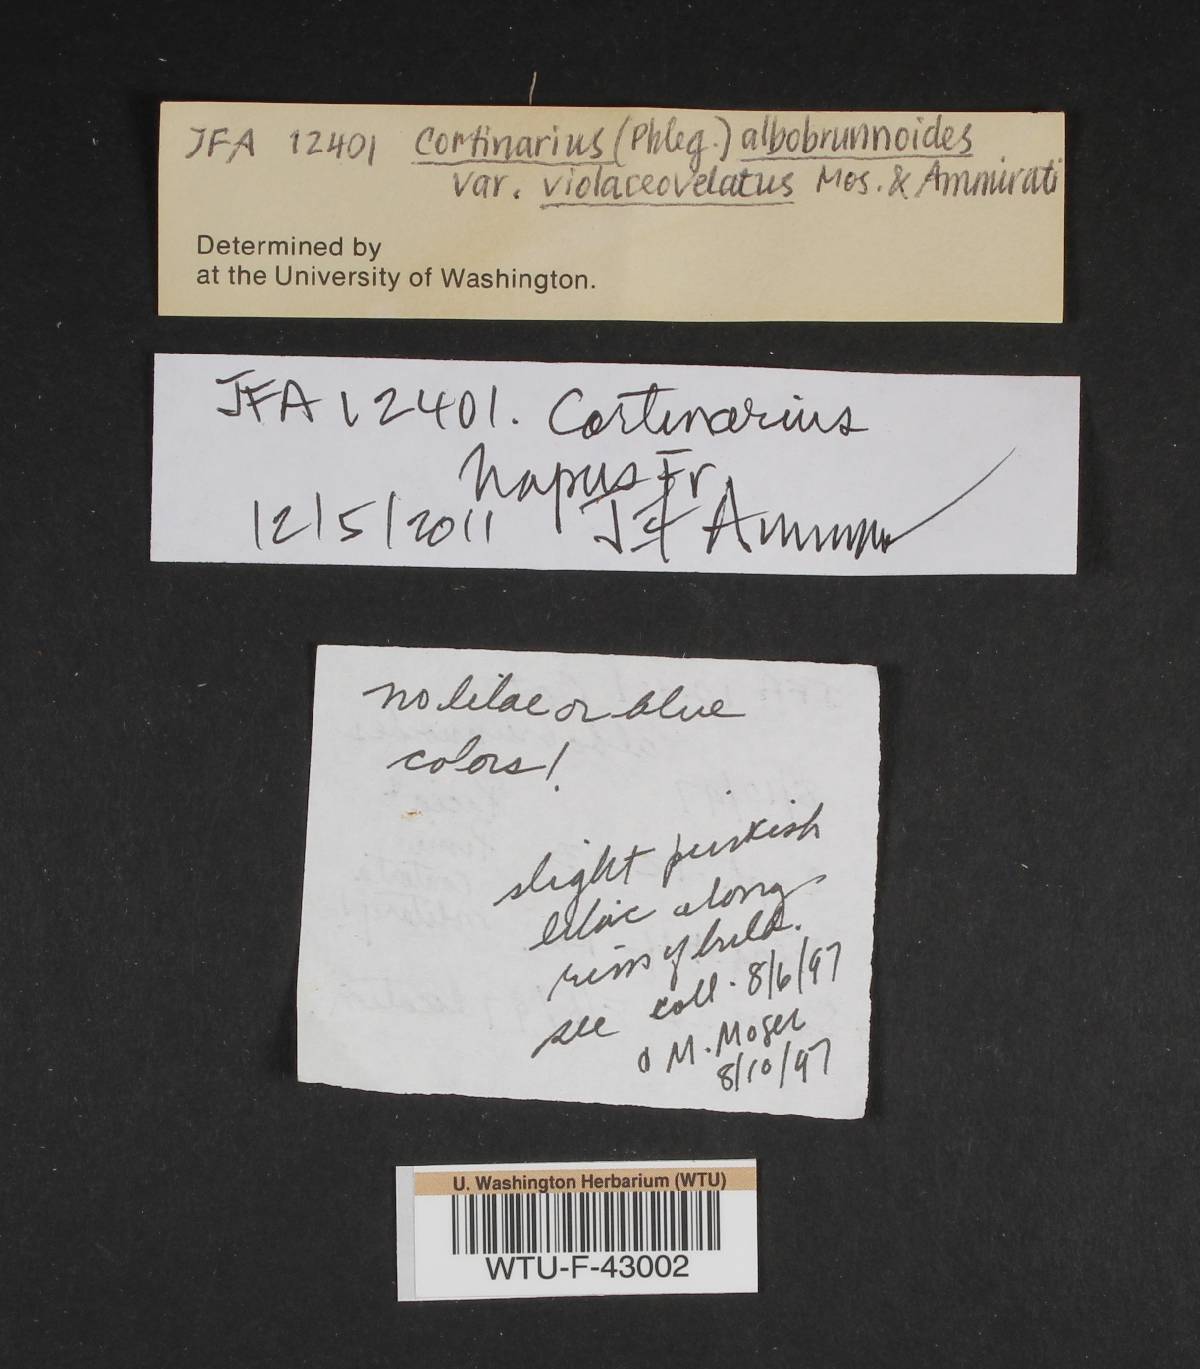 JFA 12401 Cortinarius (Phleg.) albobrunnoides
var. violaceovelatus Mos. & Ammirati
Determined by
at the University of Washington.
JFA 12401. Cortinarius
napus Fr
12/5/2011 JF Ammirati
no lilac or blue
colors!
slight pinkish
lilac along
rim of bulb.
see coll. 8/6/97
M. Moser
8/10/97
U. Washington Herbarium (WTU)
WTU-F-43002